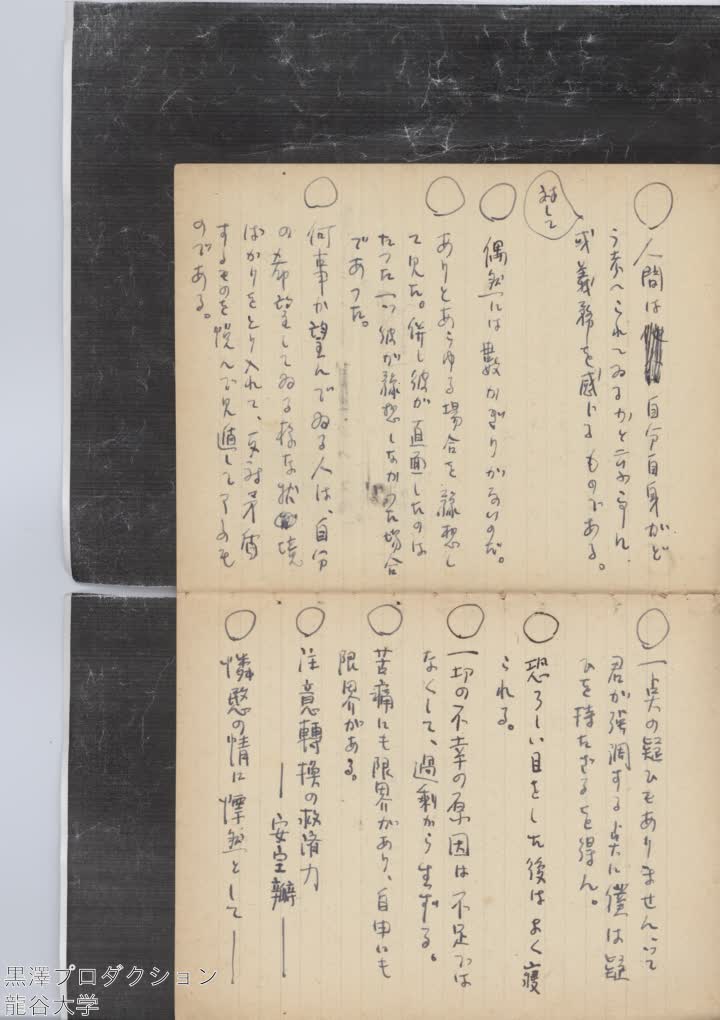 ○人間は自分自身がど
う考へられてゐるかと云ふ事に
対して
或義務を感じるものである。
○偶然には数かぎりがないのだ。
○ありとあらゆる場合を予想し
て見た。併し彼が直面したのは
たった一つ彼が予想しなかった場合
であった。
○何事か望んでゐる人は、自分
の希望してゐる様な状境
ばかりをとり入れて、反対矛盾
するものを悦んで見逭して了ふも
のである。
○一点の疑ひもありませんって
君が強調する点に僕は疑
ひを持たざるを得ん。
○恐ろしい目をした後はよく寝
られる。
○一切の不幸の原因は不足では
なくして、過剰から生ずる。
○苦痛にも限界があり、自由にも
限界がある。
○注意轉換の救済力
―安全瓣―
○憐愍の情に慄然として―
黒澤プロダクション
龍谷大学